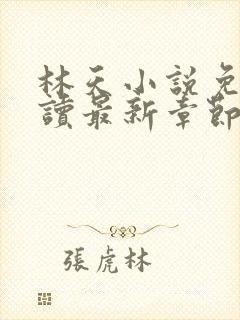 林天小説免
讀最新章節
張虎林